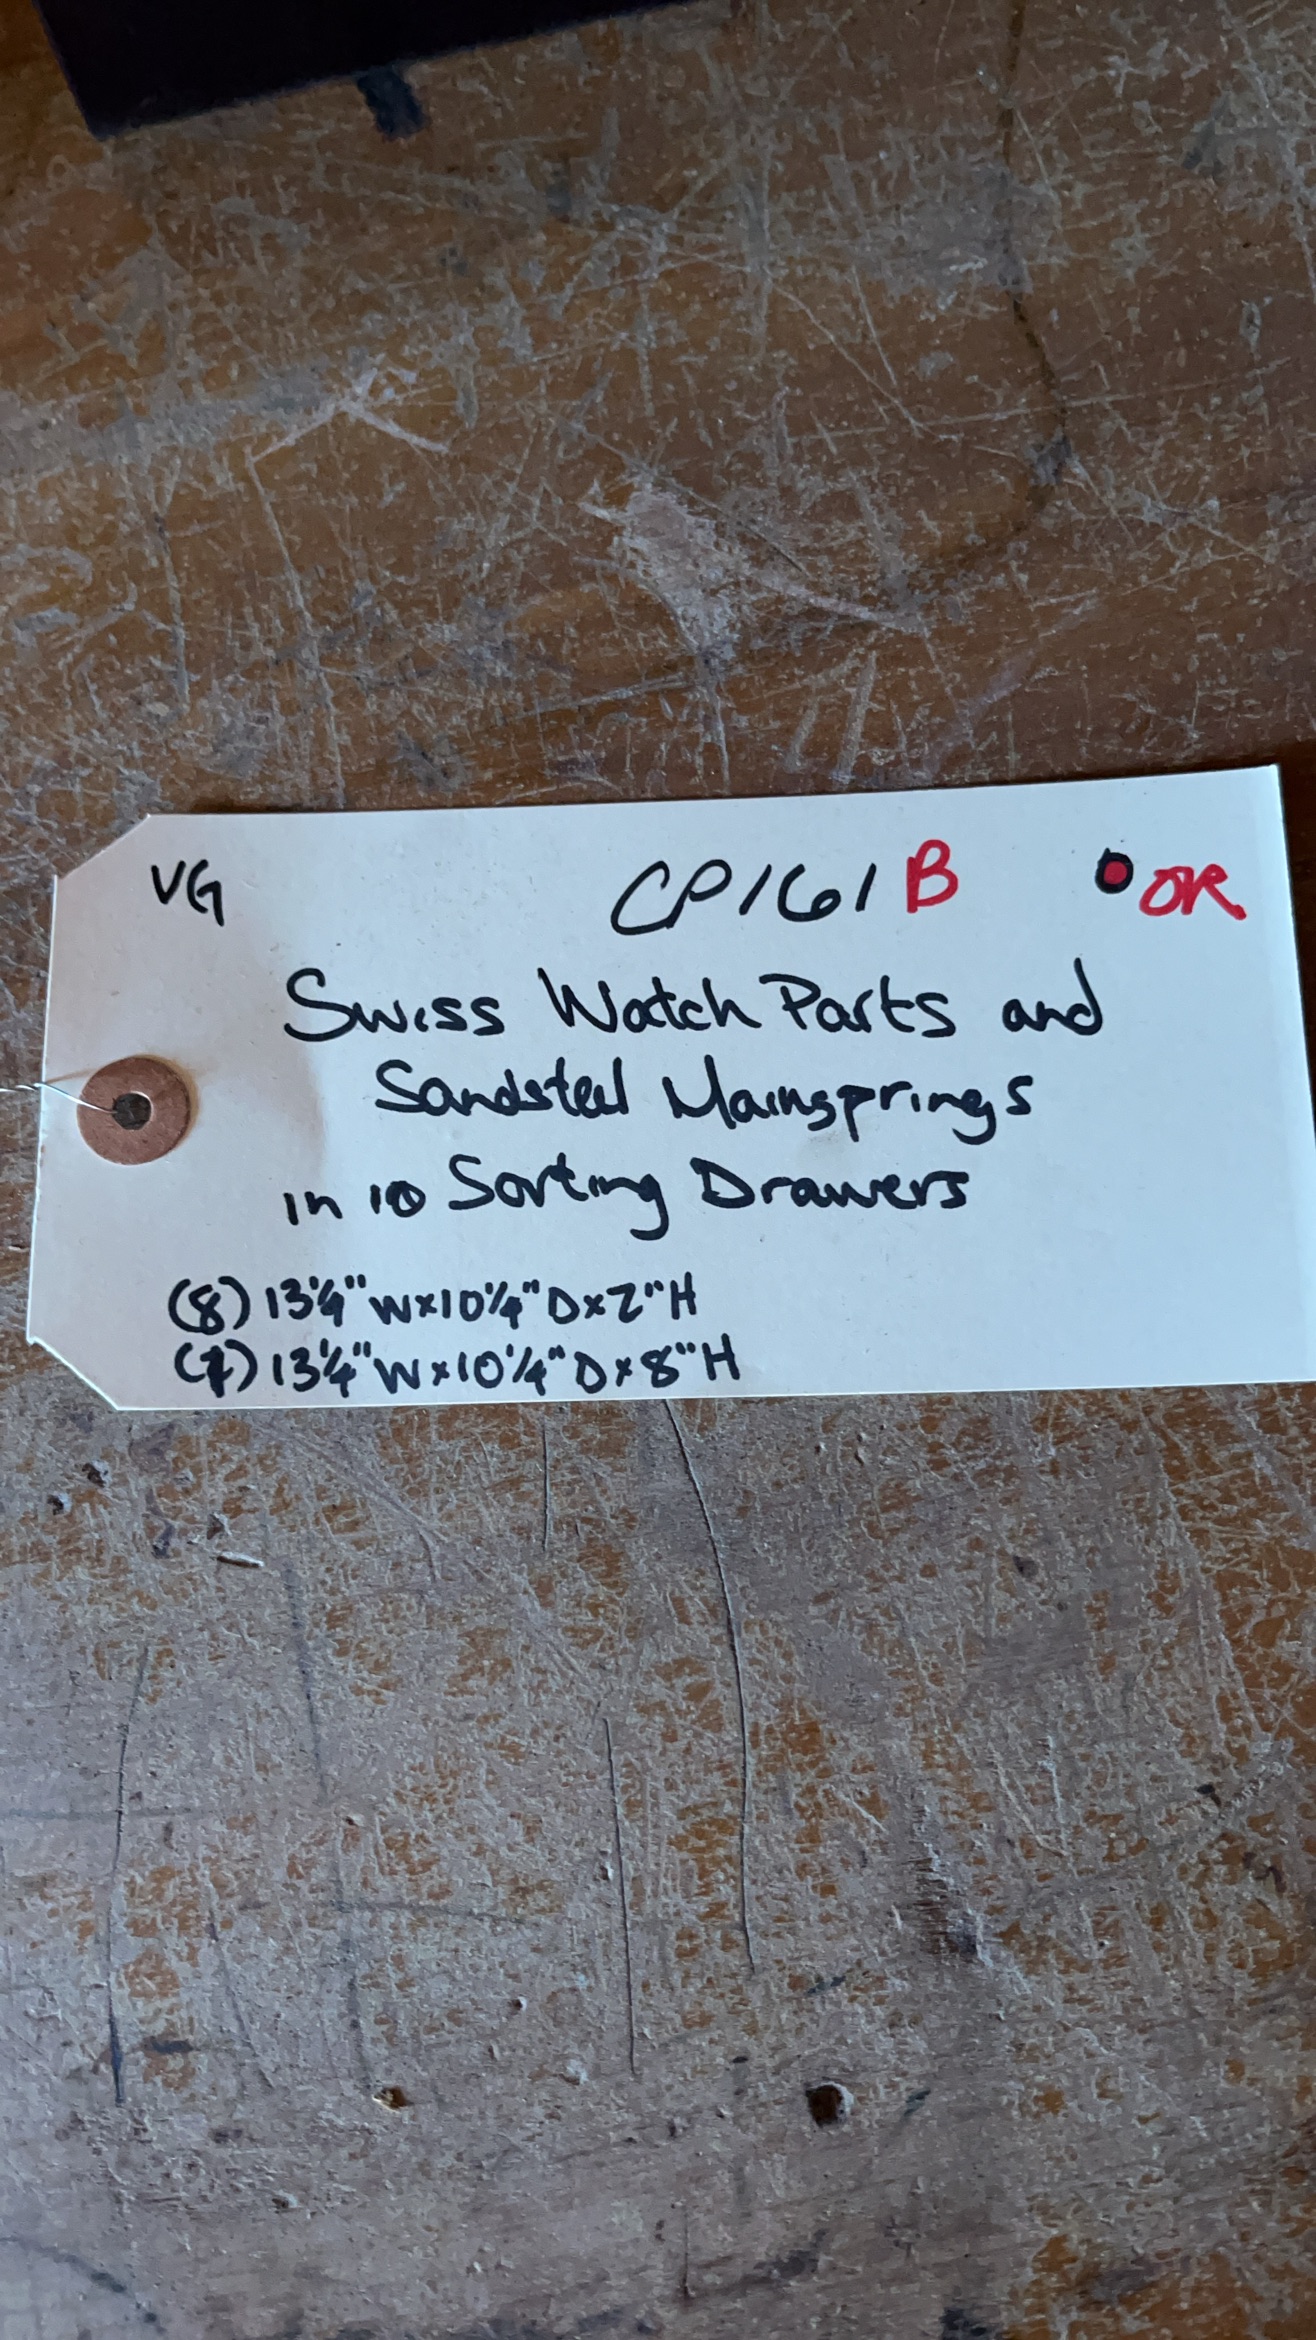 VG CP161B OR
Swiss Watch Parts and
Sandsteel Mainsprings
in 10 Sorting Drawers
(8) 13¼"W×10¼"D×2"H
13¼"W×10¼"D×8"H